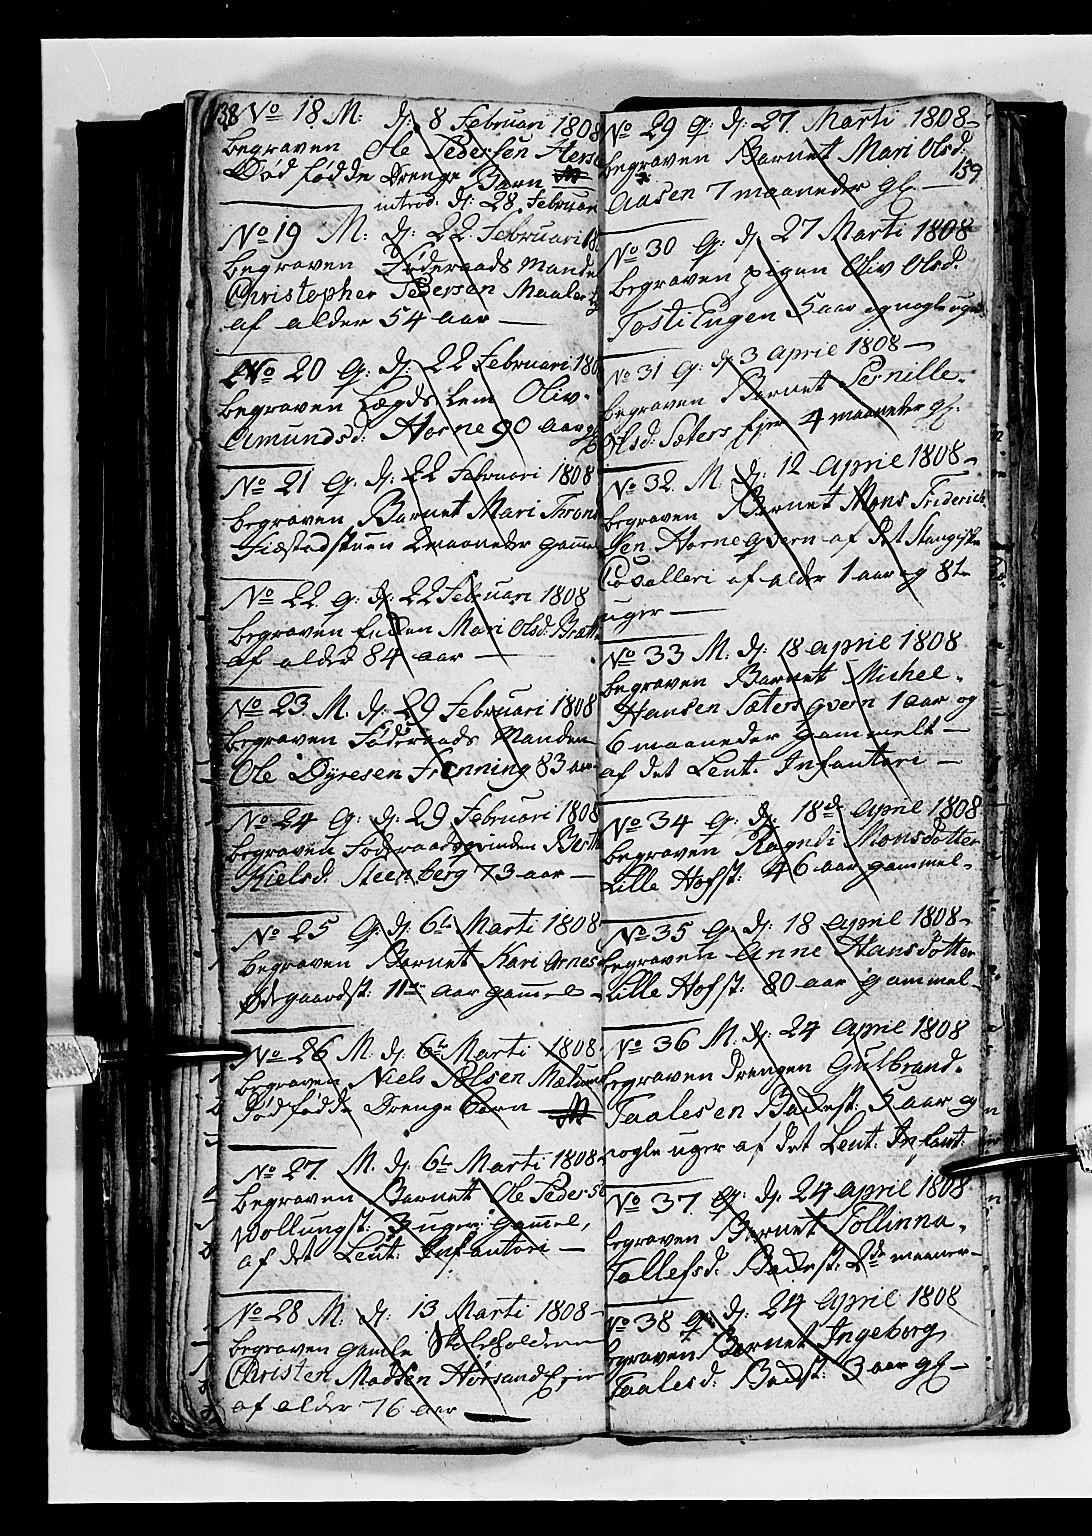 138
No 18 M: dj: 8 Februari 1808
begraven Ole Pedersøn
Død fødde Drenge Barn
introd: dj: 28 Februari
No 19 M: dj: 22 Februari
begraven Føderaads Mande
Christopher Pedersen Maaler
af alder 54 aar —
No 20 Q: dj: 22 Februari 180
begraven Lægds Lem Oliv
Amundsd: Horne 90 aar
No 21 Q: dj: 22 Februari 1808
begraven Barnet Mari Thron
Fiæstadstuen 2 maaneder gamel
No 22 Q: dj: 22 Februari 1808
begraven Enken Mari Olsd:
af alder 84 aar —
No 23 M. dj: 29 Februari 1808
begraven Føderaads Manden
Ole Dyresen Frenning 83 aar
No 24 Q: dj: 29 Februari 1808
begraven Foderaadsqvinden
Kielsd: Steenberg 73 aar —
No 25 Q: dj: 6te Marti 1808
begraven Barnet Kari Arnes
Ødegaardst: 11te aar gamel
No 26 M dj: 6te Marti 1808
begraven Niels Polsen
Dødfødde Drenge barn
No 27 M. dj: 6te Marti 1808
begraven Barnet Ole Peders
Wollungst: 3 uger gamel,
af det Leut: Infantori —
No 28 M: dj: 13 Marti 1808—
begraven gamle Skoleholdern
Christen Madsen Hørsand
af alder 76 aar —
No 29 Q: dj: 27 Marti 1808—
begraven Barnet Mari Olsd:
159
Aasen 7 maaneder gl —
No 30 Q: dj 27 Marti 1808
begraven pigen Oliv Olsd:
Tosti Eugen 5 aar og nogle uger
No 31 Q: dj: 3 April 1808 —
begraven Barnet Pernille
Olsd: Sæters Ejer 4 maaneder gl:
No 32 M. dj: 12 April 1808—
begraven Barnet Mons Friderich
sen Horneqvern af det Stangiske
Cavalleri af alder 1 aar og 8te
uger —
No 33 M. dj: 18 April 1808
begraven Barnet Michel
Hansen Sætersqvern 1 aar og
6 maaneder gammelt —
af det Leut: Infantori —
No 34 Q: dj: 18de April 1808
begraven Ragndi Monsdotter
Lille Hofst: 46 aar gammel
No 35 Q dj: 18 April 1808
begraven Anne Hansdotter
Lille Hofst: 80 aar gammel
No 36 M: dj: 24 April 1808
begraven Drengen Gulbrand
Taalesen Bakest: 5 aar og
nogle uger af det Leut: Infant:
No 37 Q: dj: 24 April 1808
begraven Barnet Pollinna
Tollefsd: Bakest: 2de maaner—
No 38 Q: dj: 24 April 1808
begraven Barnet Ingeborg
Taalesd: Bakest: 3 aar gl—